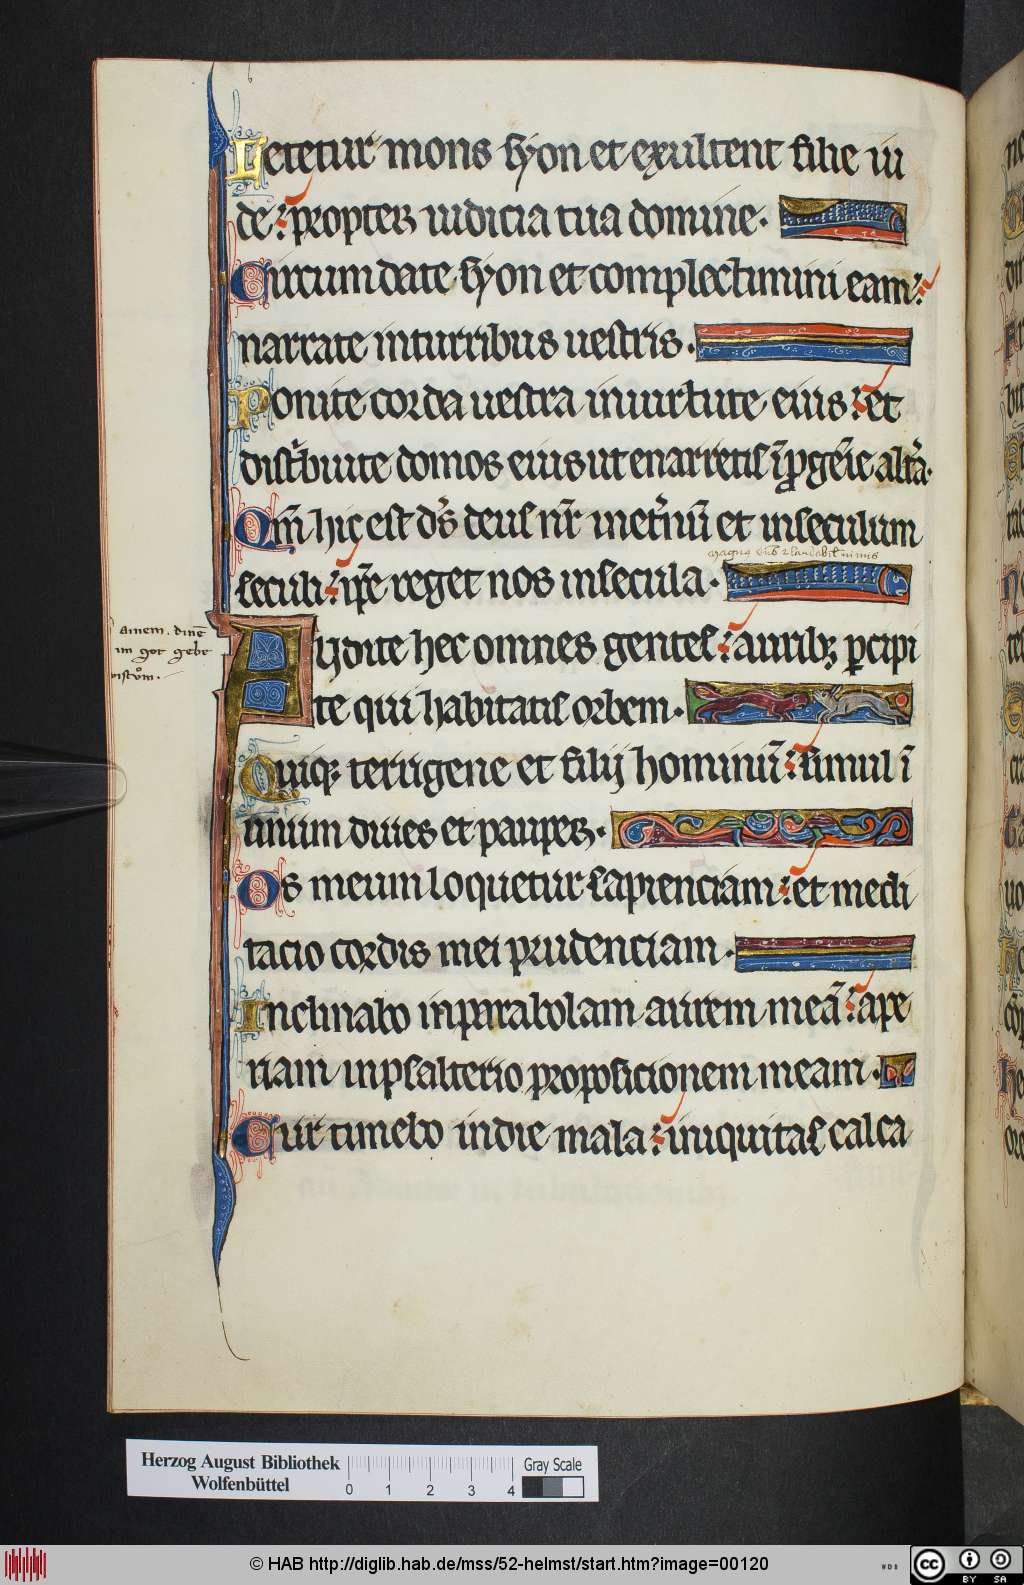 Letetur mons syon et exultent filie iu
de: propter iudicia tua domine.
Circumdate syon et complectimini eam:
narrate inturribus uestris.
Ponite corda uestra inuirtute eius: et
distˀbuite domos eius ut enarretis ī ꝓgēie altˀa.
Qm̄ hic est dˢ deus nr̄ inetˀnū et inseculum
seculi: ip̄e reget nos insecula.
magnꝰ dn̄s ⁊ laudabil̄ nimis
Audite hec omnes gentes: auribꝫ ꝑcipi
te qui habitatis orbem.
Quiqꝫ terrigene et filij hominū: simul ī
unum diues et pauper.
Os meum loquetur sapienciam: et medi
tacio cordis mei prudenciam.
Inclinabo inparabolam aurem meā: ape
riam inpsalterio proposicionem meam.
Cur timebo indie mala: iniquitas calca
Herzog August Bibliothek
Wolfenbüttel
0 1 2 3 4
Gray Scale
© HAB http://diglib.hab.de/mss/52-helmst/start.htm?image=00120
WDB
cc BY SA